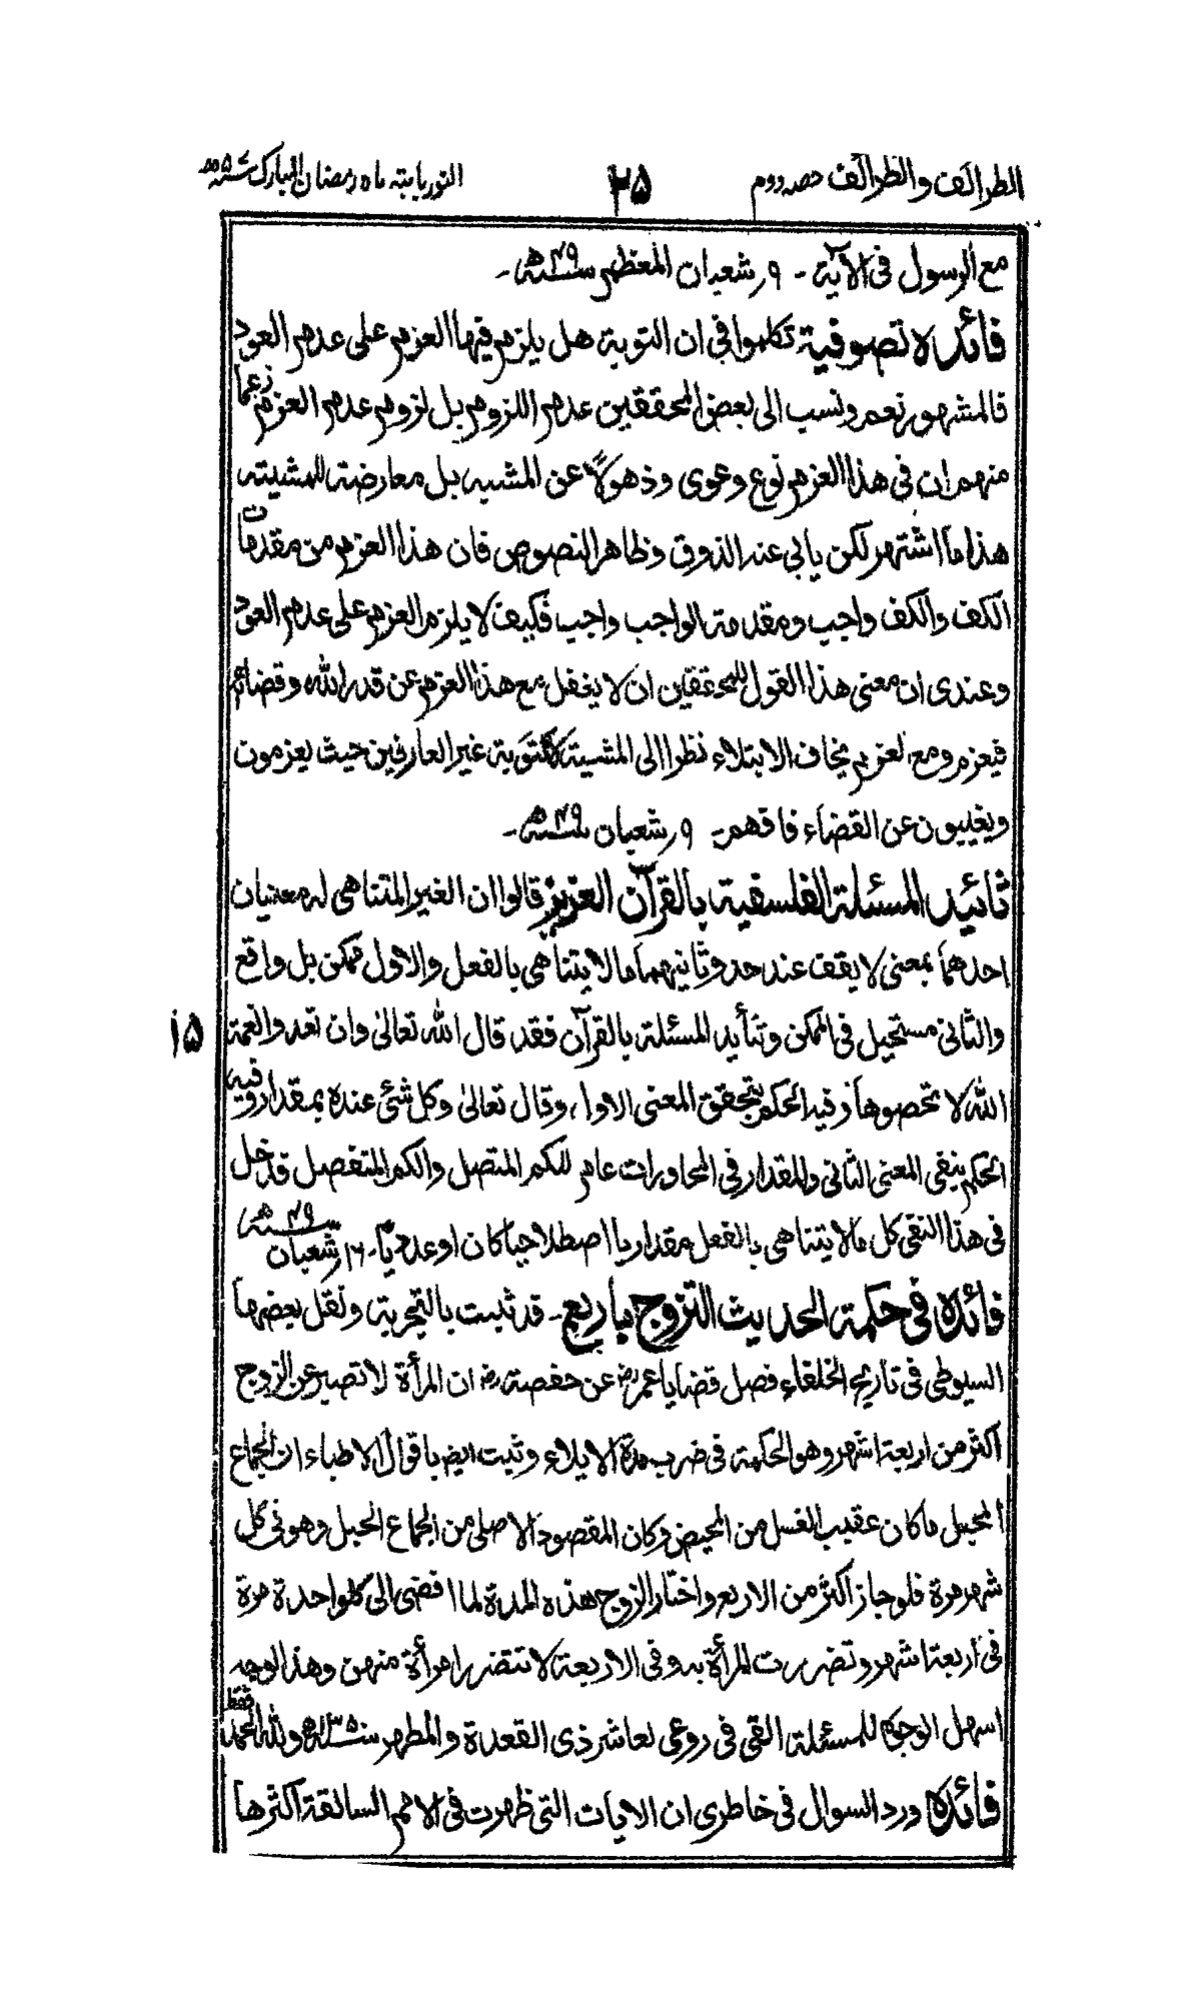 الطرائف والظرائف حصہ دوم ۲۵ النور بابتہ ماہ رمضان المبارک
مع الرسول فی الآیة - ۹ر شعبان المعظم سنہ ۴۹ھ -
فائدہ تصوفیة تکلموا فی ان التوبة هل یلزم فیها العزم علی عدم العود
فالمشهور نعم ونسب الی بعض المحققین عدم اللزوم بل لزوم عدم العزم زعما
منهم ان فی هذا العزم نوع دعوی وذهولاً عن المشیه بل معارضة للمشیته
هذا ما اشتهر لکن یابی عنه الذوق وظاهر النصوص فان هذا العزم من مقدمات
الکف والکف واجب ومقدمة الواجب واجب فکیف لا یلزم العزم علی عدم العود
وعندی ان معنی هذا القول للمحققین ان لا یغفل مع هذا العزم عن قدر الله وقضائه
فیعزم ومع العزم یخاف الابتلاء نظرا الی المشیة لا کتوبة غیر العارفین حیث یعزمون
ویغیبون عن القضاء فافهم - ۹ر شعبان سنہ ۴۹ھ -
تائید المسئلة الفلسفیة بالقرآن العزیز قالوا ان الغیر المتناهی له معنیان
احدهما بمعنی لا یقف عند حد وثانیهما ما لا یتناهی بالفعل والاول ممکن بل واقع
والثانی مستحیل فی الممکن وتتأید المسئلة بالقرآن فقد قال الله تعالیٰ وان تعدوا نعمة
۱۵
الله لا تحصوها وفیه الحکم بتحقق المعنی الاول وقال تعالیٰ وکل شئی عنده بمقدار وفیه
الحکم بنفی المعنی الثانی والمقدار فی المحاورات عام للکم المتصل والکم المنفصل فدخل
فی هذا النفی کل ما لا یتناهی بالفعل مقداریا اصطلاحیا کان او عددیًا - ۱۶ر شعبان سنہ ۴۹ھ
فائدہ فی حکمة الحدیث التزوج باربع - قد ثبت بالتجربة ونقل بعضها
السیوطی فی تاریخ الخلفاء فصل قضایا عمرؓ عن حفصةؓ ان المرأة لا تصبر عن الزوج
اکثر من اربعة اشهر وهو الحکمة فی ضرب مدة الایلاء وثبت ایضا باقوال الاطباء ان الجماع
المحبل ما کان عقیب الغسل من المحیض وکان المقصود الاصلی من الجماع الحبل وهو فی کل
شهر مرة فلو جاز اکثر من الاربع واختار الزوج هذه المدة لما افضی الی کل واحدة مرة
فی اربعة اشهر وتضررت المرأة به وفی الاربعة لا تتضرر امرأة منهن وهذا الوجه
اسهل الوجوه للمسئلة القی فی روعی لعاشر ذی القعدة والمطهر سنہ ۱۳۵۰ھ ولله الحمد فقط
فائدہ ورد السوال فی خاطری ان الایات التی ظهرت فی الامم السالفة اکثرها